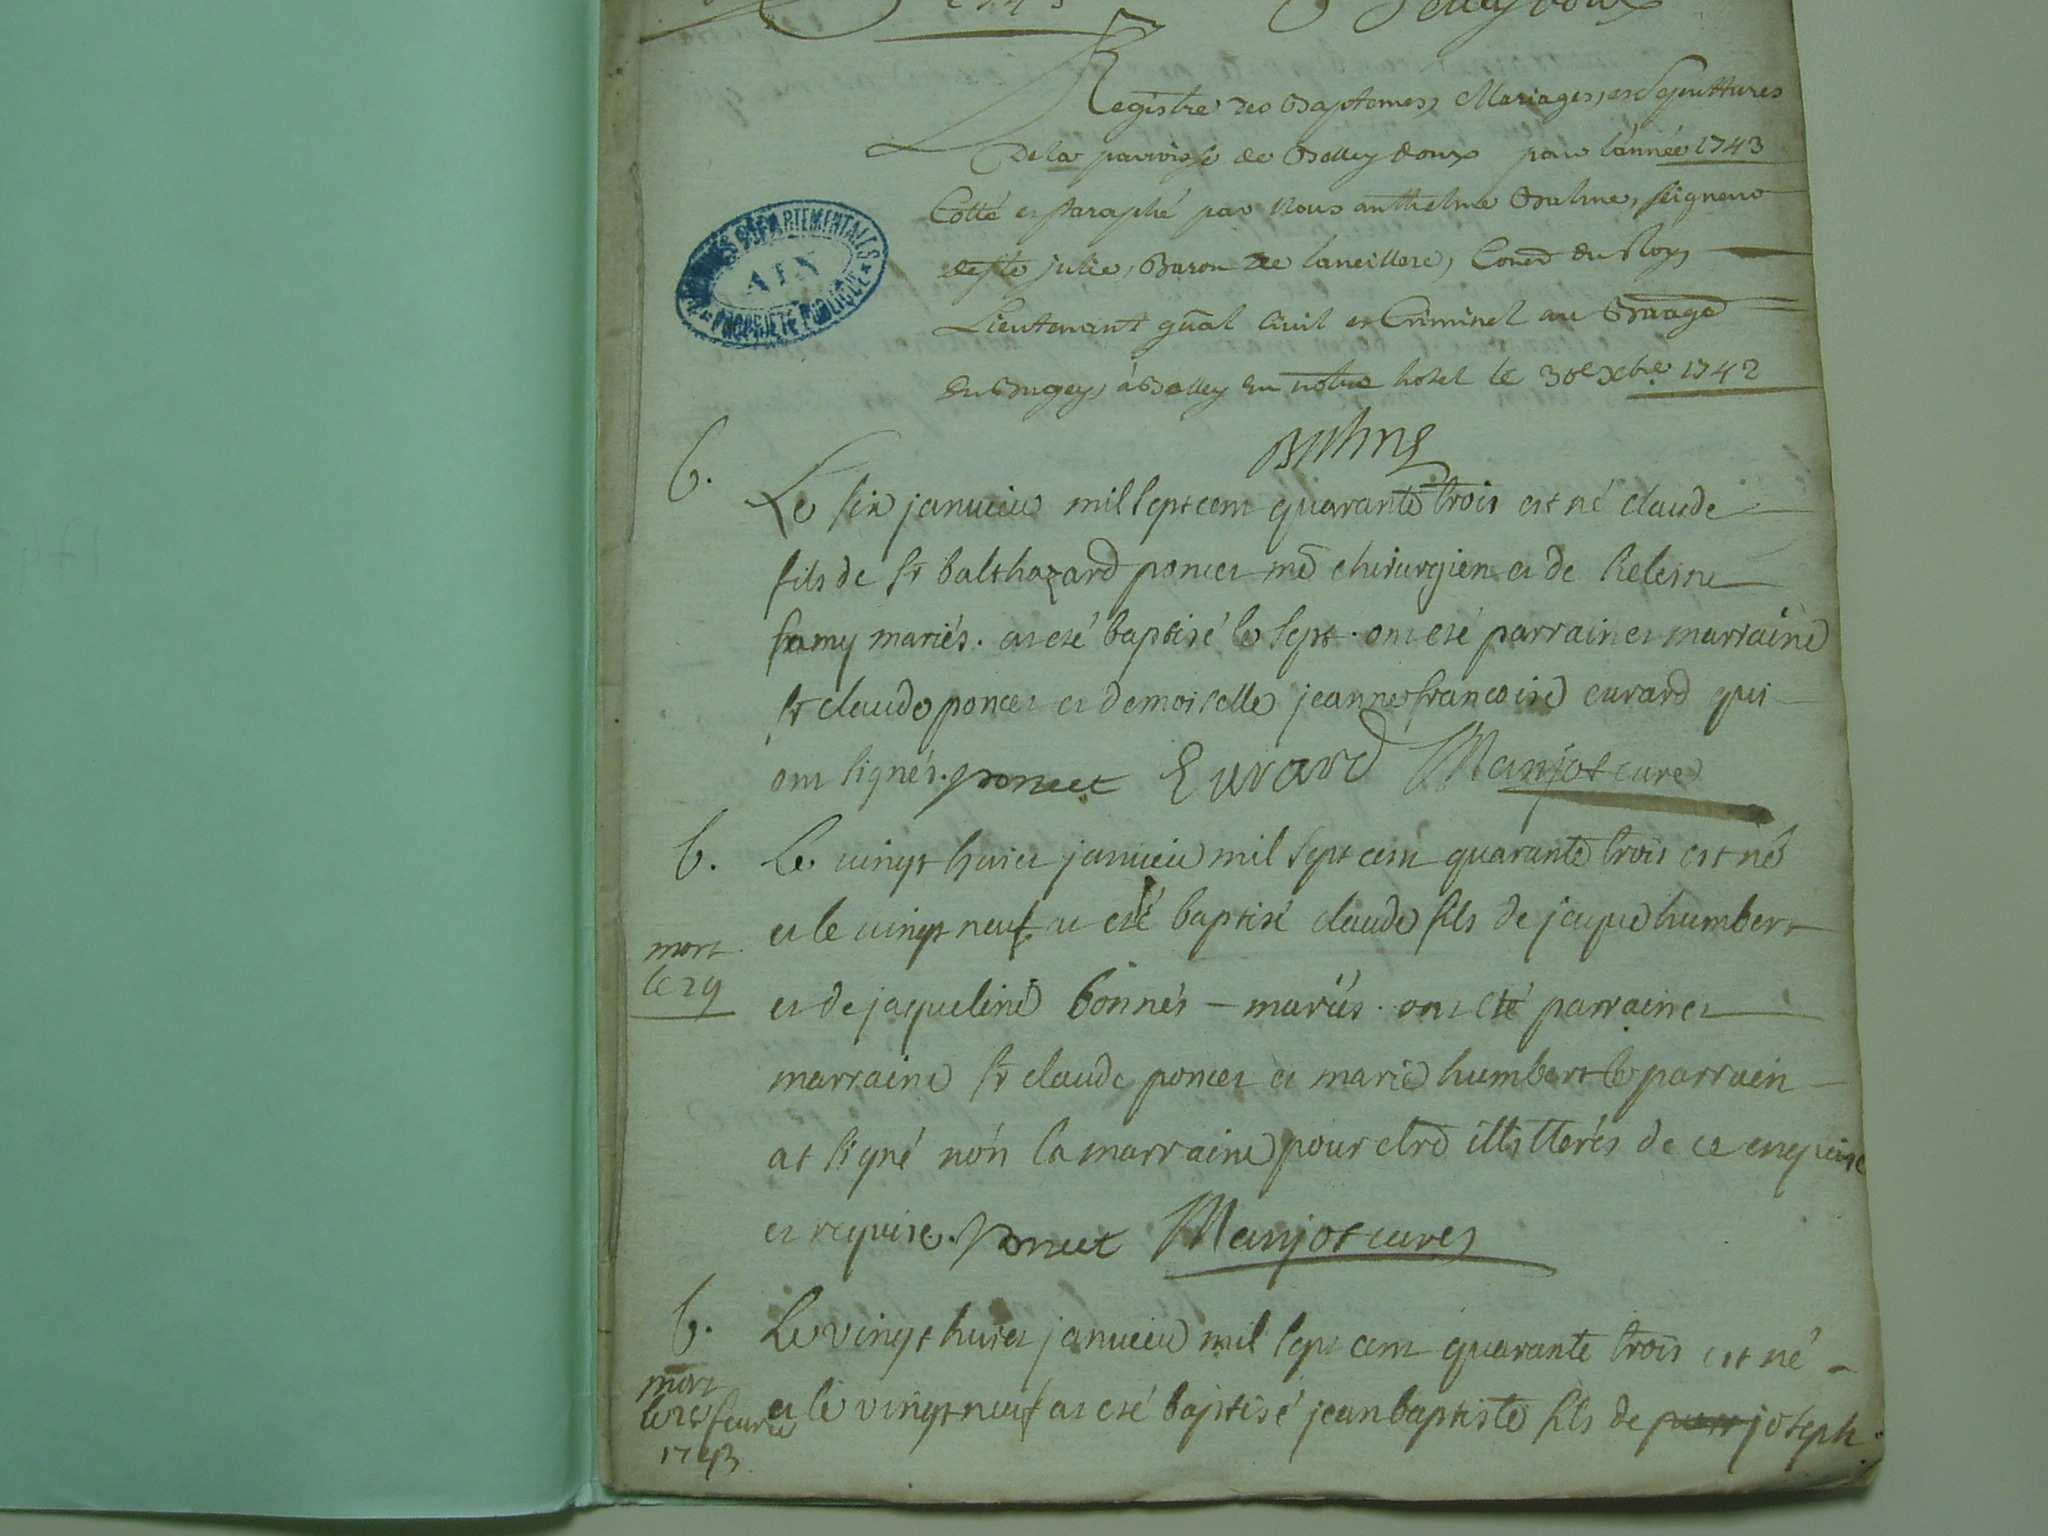 1743 Belleydoux
Registre des Baptemes, Mariages, et Sepulttures
De la parroisse de Belleydoux pour l'année 1743
Cotté et Paraphé par Nous anthelme Balme, seigneur
de ste julie, Baron de Conser du Roy
Lieutenant gñal Civil et Criminel au Baage
du Bugey, à Belley en notre hotel le 30e Xbre 1742
ARCHIVES DÉPARTEMENTALES
AIN
PROPRIÉTÉ PUBLIQUE
Balme
b. Le six janvier mil sept cent quarante trois est né claude
fils de sr balthazard poncet me chirurgien et de heleine
famy mariés. at eté baptisé le sept. ont eté parrain et marraine
sr claude poncet et demoiselle jeanne francoise evrard qui
ont signés. poncet Evrard Manjot curé
b. Le vingt huict janvier mil sept cent quarante trois est né
et le vingt neuf at eté baptisé claude fils de jaque humbert
mort
le 29
et de jaqueline bonnés – mariés. ont eté parrain et
marraine sr claude poncet et marie humbert le parrain
at signé non la marraine pour etre illitterés de ce enquise
et requise. poncet Manjot curé
b. Le vingt huict janvier mil sept cent quarante trois est né
mort
le feuvrier
1743
et le vingt neuf at eté baptisé jean baptiste fils de joseph